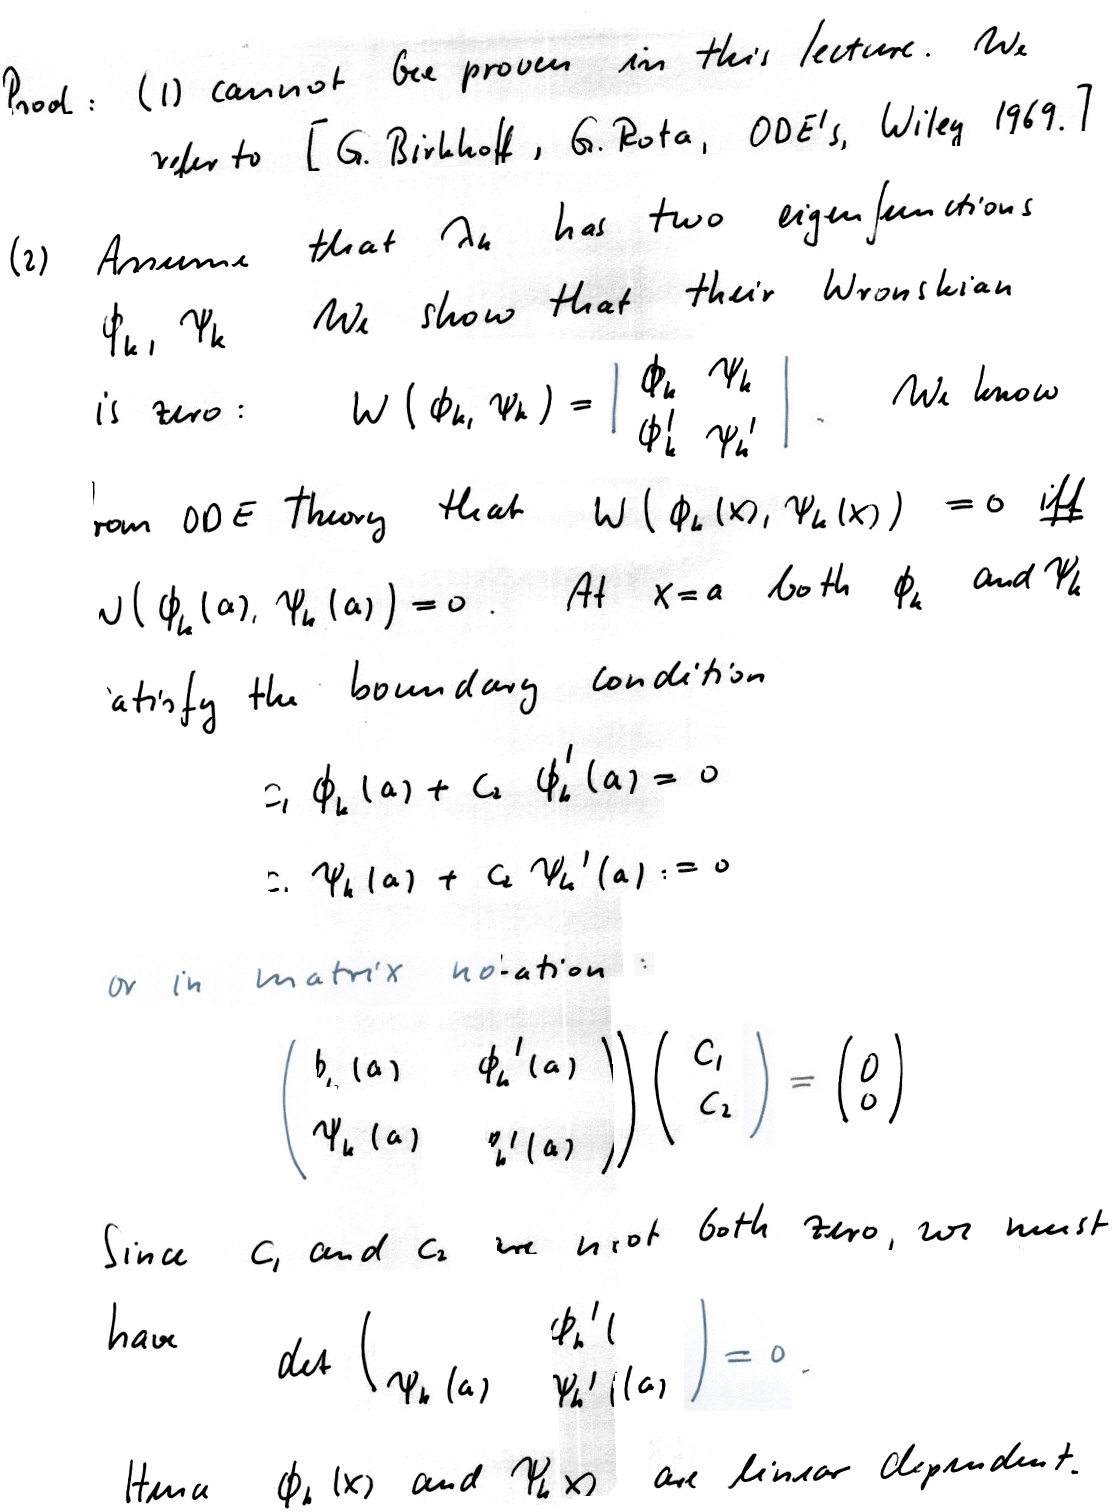 Proof: (1) cannot be proven in this lecture. We
refer to [G. Birkhoff, G. Rota, ODE's, Wiley 1969.]
(2) Assume that λₖ has two eigenfunctions
ϕₖ, ψₖ We show that their Wronskian
is zero: W(ϕₖ, ψₖ) = | ϕₖ ψₖ | . We know
ϕₖ' ψₖ'
rom ODE Theory that W(ϕₖ(x), ψₖ(x)) = 0 iff
W(ϕₖ(a), ψₖ(a)) = 0. At x=a both ϕₖ and ψₖ
atisfy the boundary condition
c₁ ϕₖ(a) + c₂ ϕₖ'(a) = 0
ψₖ(a) + c₂ ψₖ'(a) = 0
or in matrix notation:
( (a) ϕₖ'(a) ) ( C₁ ) = ( 0 )
ψₖ(a) '(a) C₂ 0
Since c₁ and c₂ are not both zero, we must
have det ( ϕₖ'( ) = 0.
ψₖ(a) ψₖ'(a)
Hence ϕₖ(x) and ψₖ x) are linear dependent.